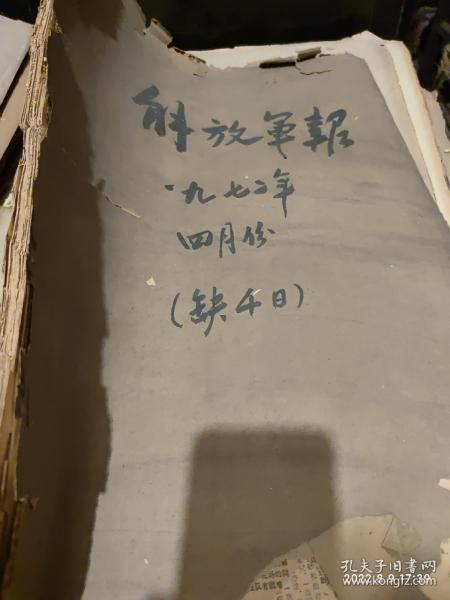 解放軍報
一九七二年
四月份
(缺4日)
孔夫子旧书网
2022.8.9 17:39